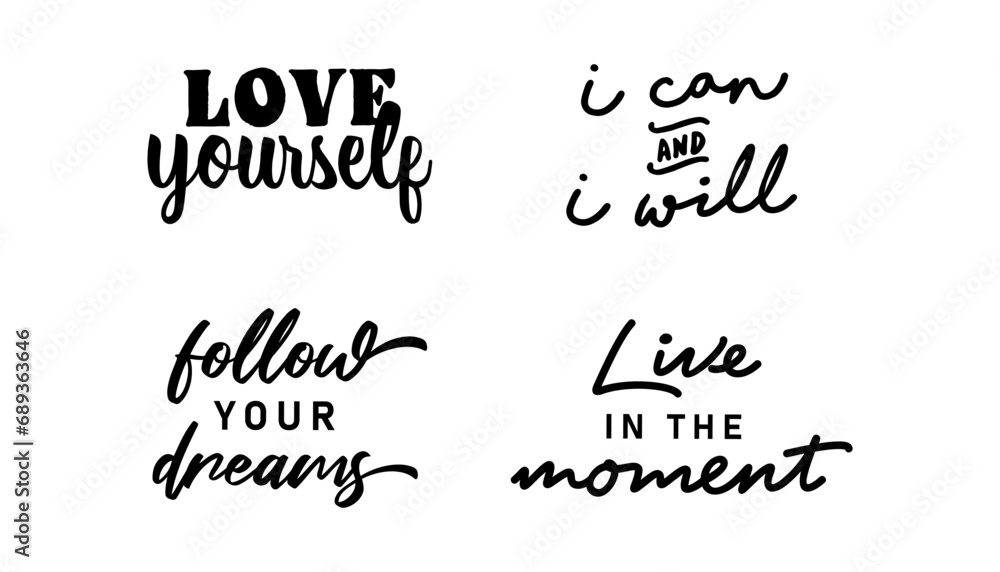 LOVE
yourself
i can
AND
i will
follow
YOUR
dreams
Live
IN THE
moment
Adobe Stock | #689363646